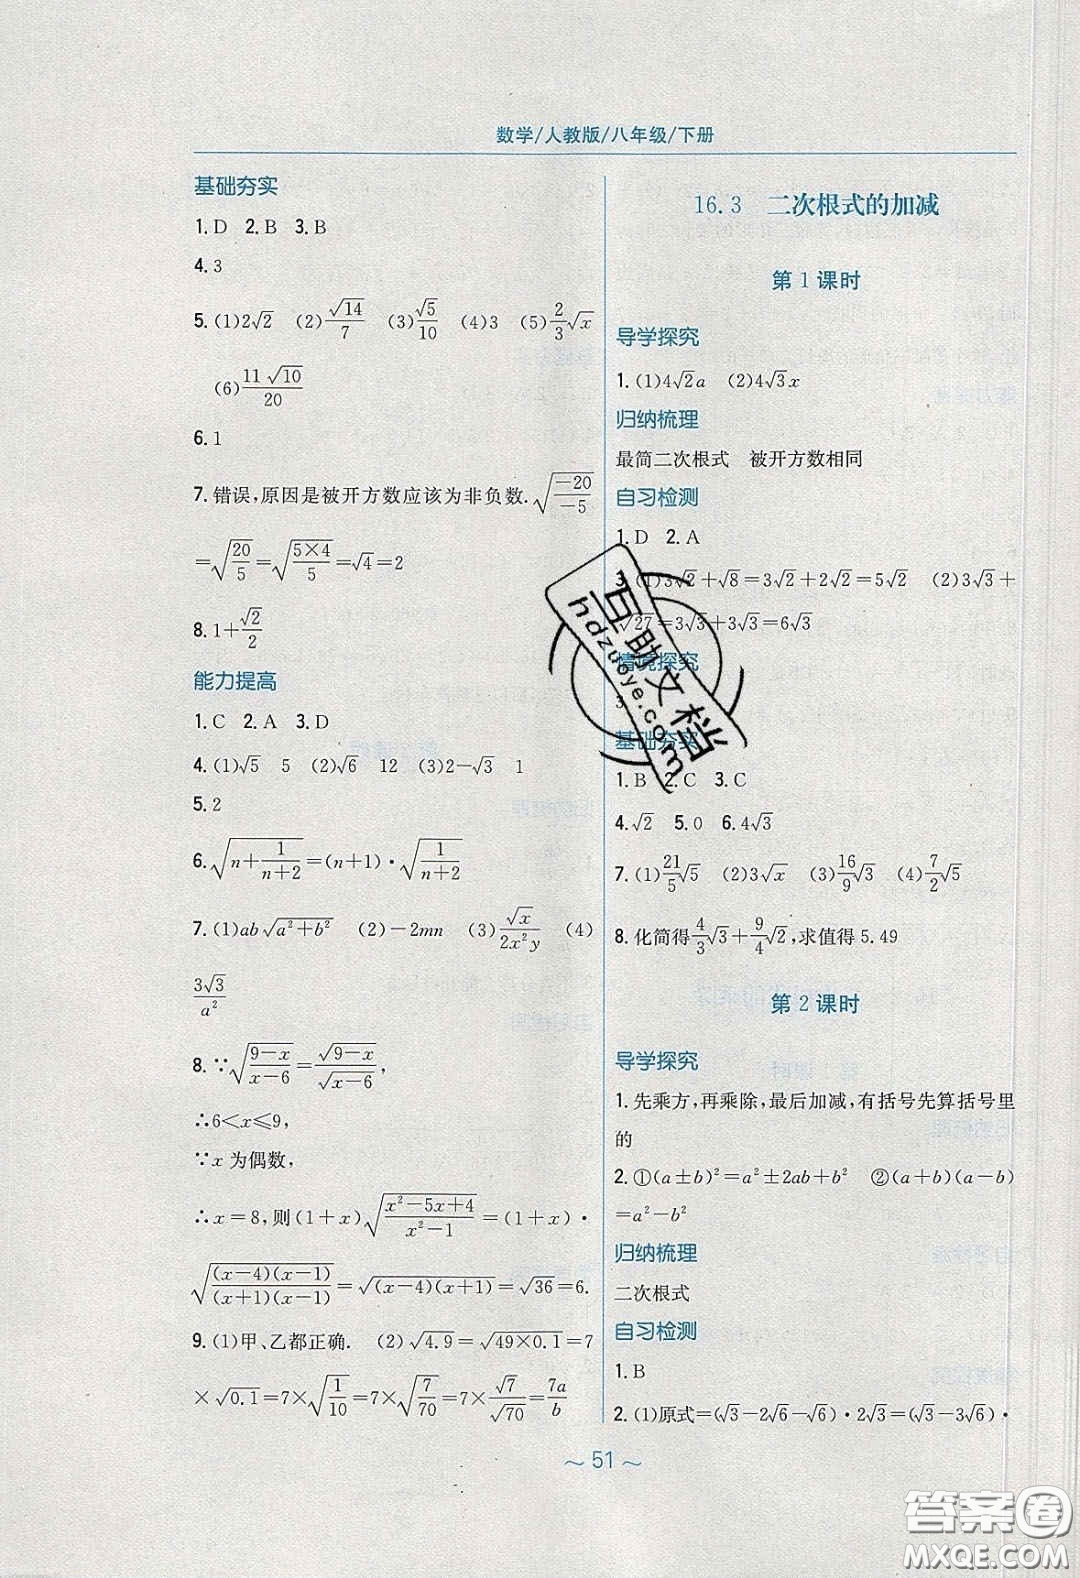 数学/人教版/八年级/下册
基础夯实
1. D 2. B 3. B
4. 3
5. (1)2√2 (2)√14/7 (3)√5/10 (4)3 (5)2/3√x
(6)11√10/20
6. 1
7. 错误,原因是被开方数应该为非负数. √(-20/-5)
=√(20/5)=√(5×4/5)=√4=2
8. 1+√2/2
能力提高
1. C 2. A 3. D
4. (1)√5 5 (2)√6 12 (3)2-√3 1
5. 2
6. √(n+1/(n+2))=(n+1)·√(1/(n+2))
7. (1)ab√(a²+b²) (2)-2mn (3)√x/(2x²y) (4)
3√3/a²
8. ∵√((9-x)/(x-6))=√(9-x)/√(x-6),
∴6<x≤9,
∵x 为偶数,
∴x=8,则(1+x)√((x²-5x+4)/(x²-1))=(1+x)·
√((x-4)(x-1)/((x+1)(x-1)))=√((x-4)(x+1))=√36=6.
9. (1)甲、乙都正确. (2)√4.9=√(49×0.1)=7
×√0.1=7×√(1/10)=7×√(7/70)=7×√7/√70=7a/b
16.3 二次根式的加减
第1课时
导学探究
1. (1)4√2a (2)4√3x
归纳梳理
最简二次根式 被开方数相同
自习检测
1. D 2. A
3. (1)3√2+√8=3√2+2√2=5√2 (2)3√3+
√27=3√3+3√3=6√3
情境探究
3
基础夯实
1. B 2. C 3. C
4. √2 5. 0 6. 4√3
7. (1)21/5√5 (2)3√x (3)16/9√3 (4)7/2√5
8. 化简得4/3√3+9/4√2,求值得5.49
第2课时
导学探究
1. 先乘方,再乘除,最后加减,有括号先算括号里
的
2. ①(a±b)²=a²±2ab+b² ②(a+b)(a-b)
=a²-b²
归纳梳理
二次根式
自习检测
1. B
2. (1)原式=(√3-2√6-√6)·2√3=(√3-3√6)·
～51～
互助文档
hdzuoye.com
答案圈
MXQE.COM